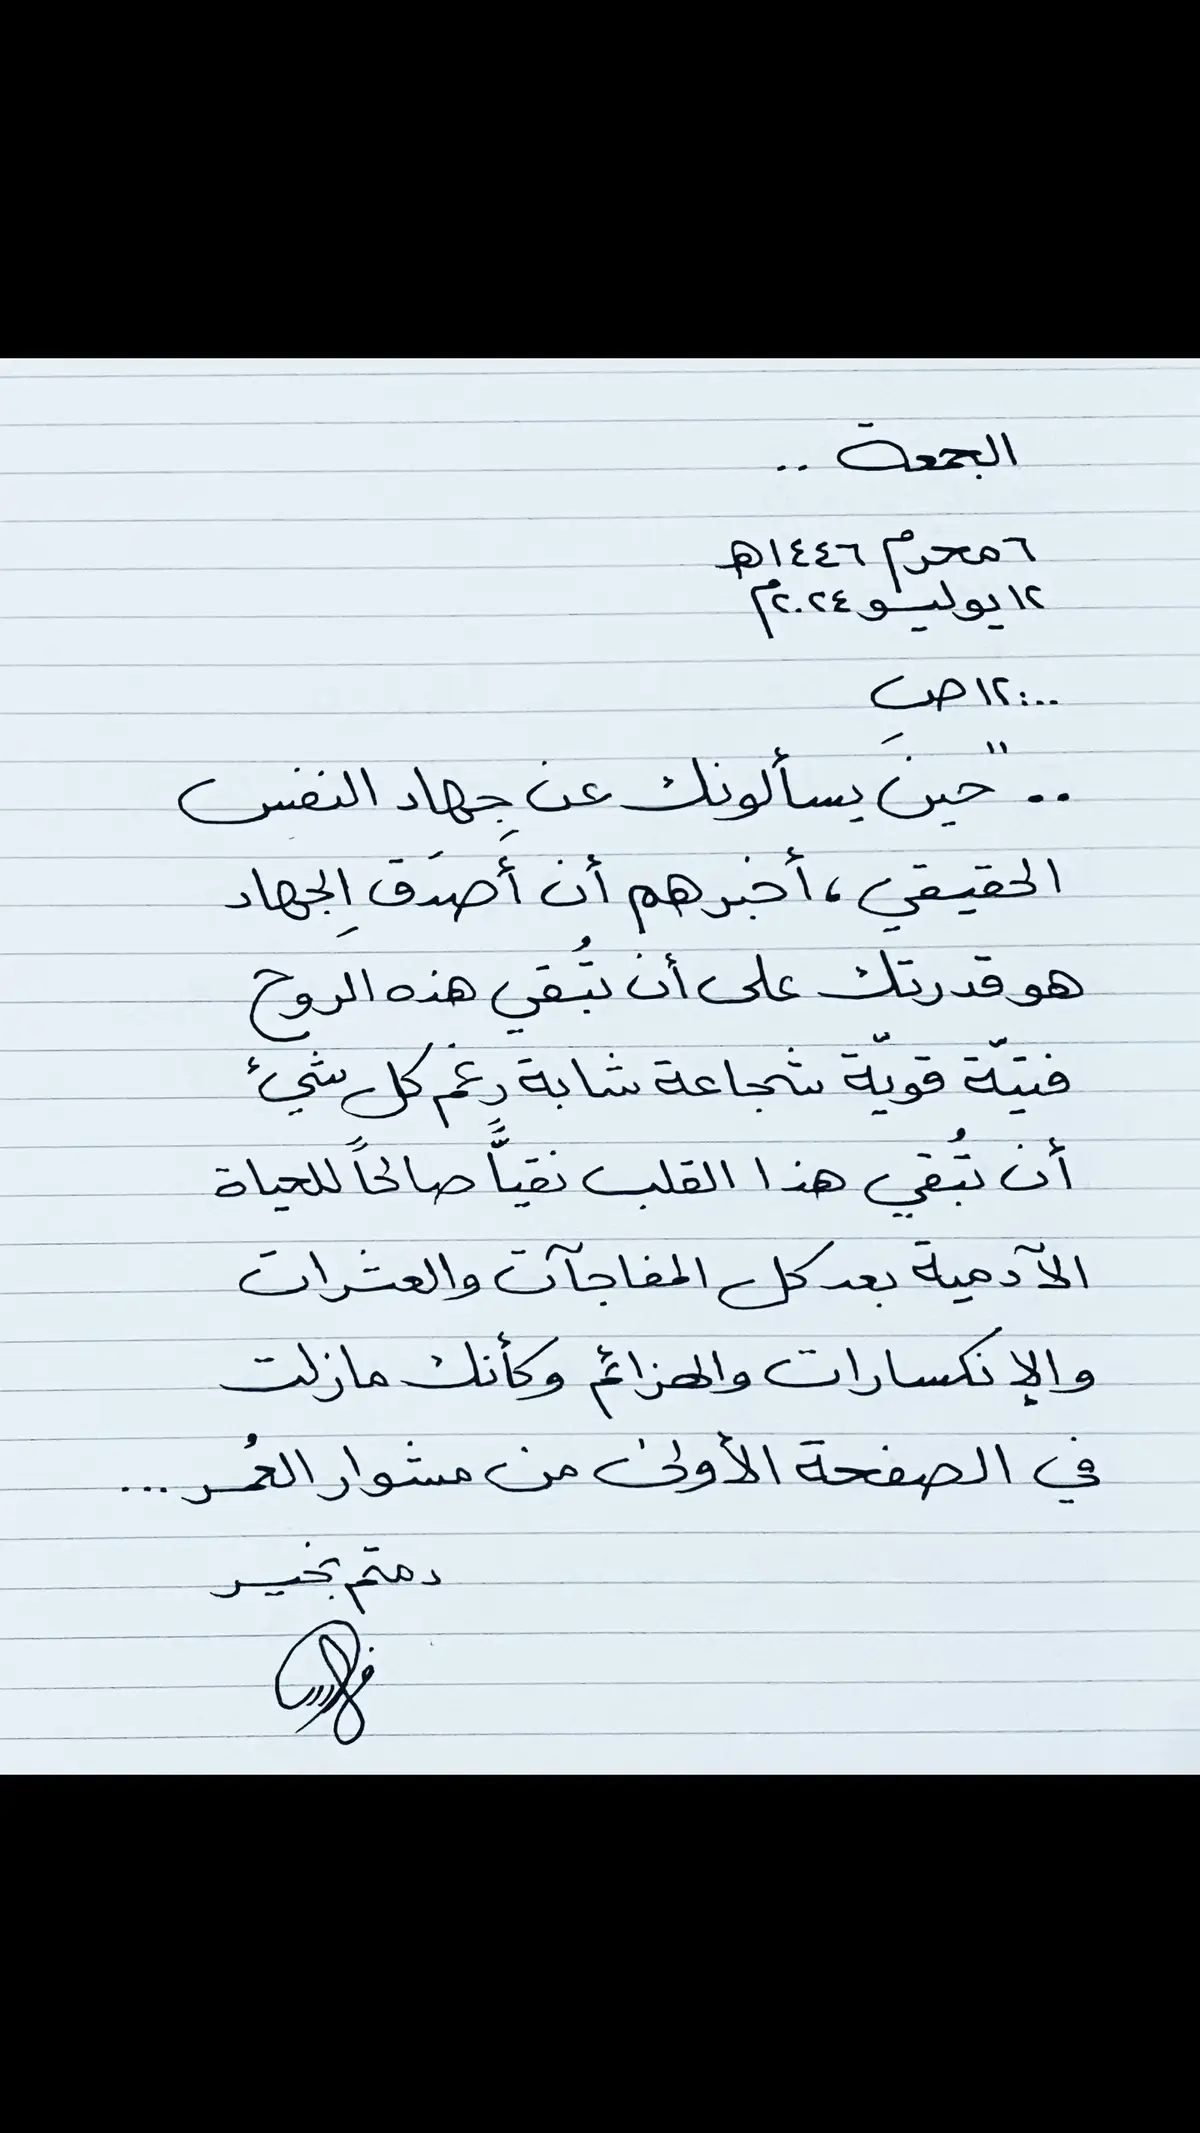 الجمعة ..
٦ محرم ١٤٤٦هـ
١٢ يوليو ٢٠٢٤م
١٢:٠٠ ص
.. "حينَ يسألونك عن جِهاد النفس
الحقيقي ، أخبرهم أن أصدَق الجِهاد
هو قدرتك على أن تُبقي هذه الروح
فتيّة قويّة شجاعة شابة رغم كل شيئ
أن تُبقي هذا القلب نقياًّ صالحاً للحياة
الآدمية بعد كل المفاجآت والعثرات
والإنكسارات والهزائم وكأنك مازلت
في الصفحة الأولى من مشوار العُمر ...
دمتم بخير